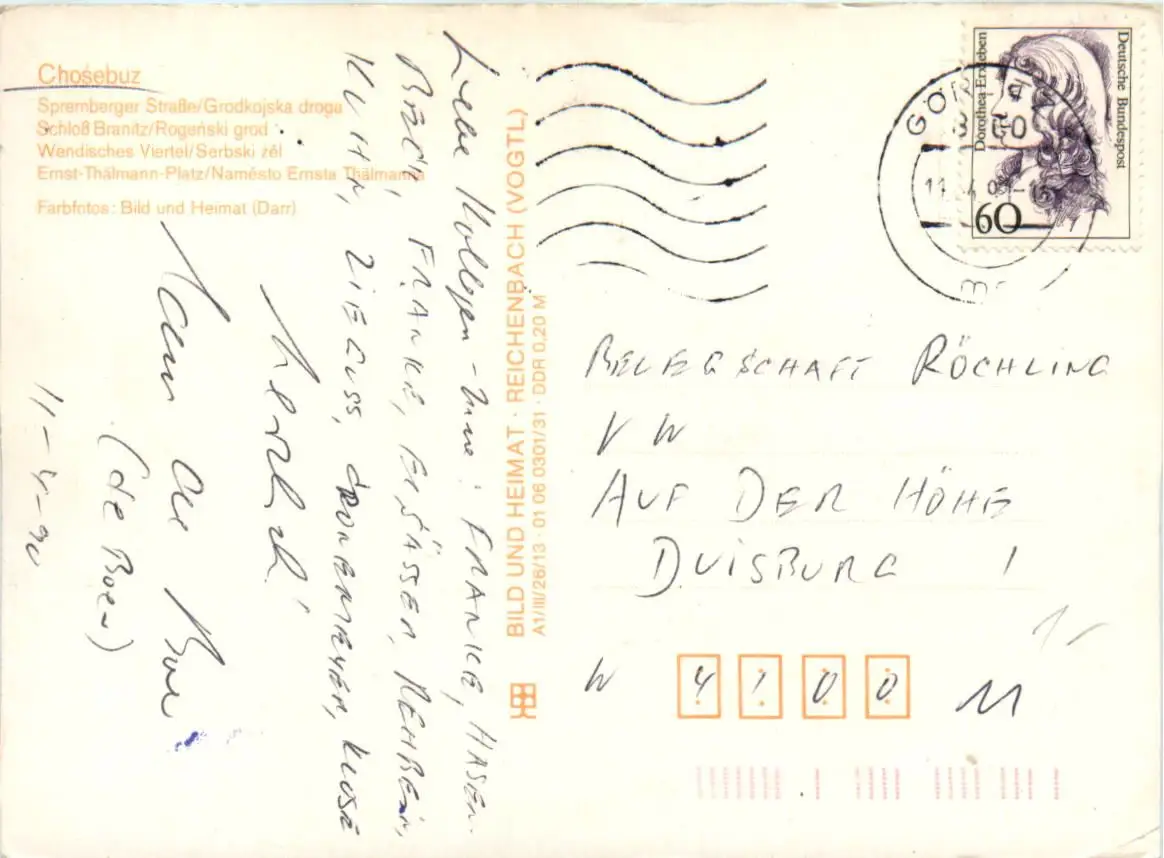 Chośebuz
Spremberger Straße/Grodkojska droga
Schloß Branitz/Rogeński grod
Wendisches Viertel/Serbski źěl
Ernst-Thälmann-Platz/Naměsto Ernsta Thälmanna
Farbfotos: Bild und Heimat (Darr)
Liebe Kollegen-Innen: FRANKE, HASEN-
FRANKE, ELSÄSSER, REHBEIN,
KUHN,
KLOSE
Herzlich!
(de Boer)
11-4-90
BILD UND HEIMAT · REICHENBACH (VOGTL)
A1/III/26/13 · 01 06 0301/31 · DDR 0,20 M
Dorothea Erxleben
Deutsche Bundespost
60
GÖR
11
BELEGSCHAFT RÖCHLING
VW
AUF DER HÖHE
DUISBURG 1
W 4100